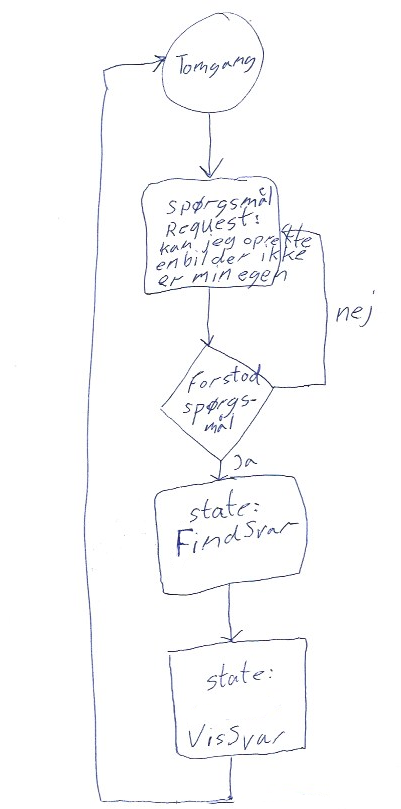 Tomgang
Spørgsmål
Request:
kan jeg oprette
en bil der ikke
er min egen
nej
Forstod
spørgs-
mål
Ja
state:
FindSvar
state:
VisSvar